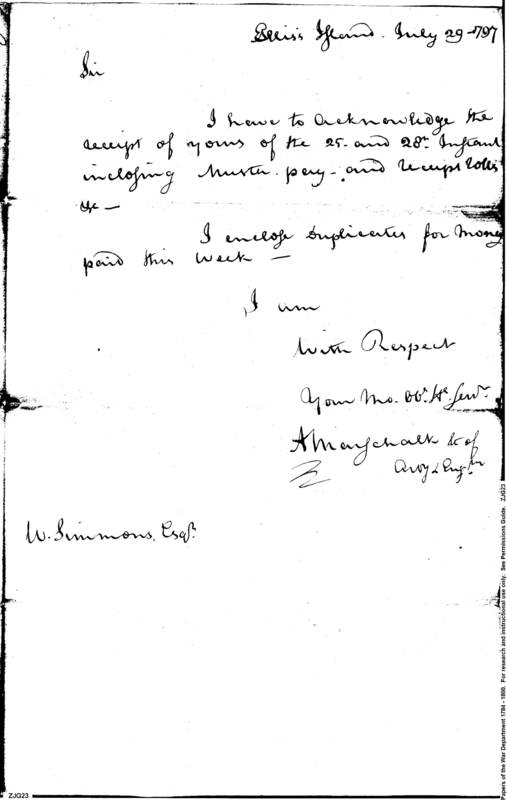 Ellis's Island. July 29 - 1797
Sir
I have to acknowledge the
receipt of yours of the 25. and 28th Instant
inclosing Muster. pay - and receipt rolls
&c —
I enclose Duplicates for Money
paid this week —
I am
With Respect
Your Mo. Obt. He. Servt.
A Marschalk Lt of
Arty & Engrs
W. Simmons, Esqr.
ZJG23
Papers of the War Department 1784 - 1800. For research and instructional use only. See Permissions Guide. ZJG23